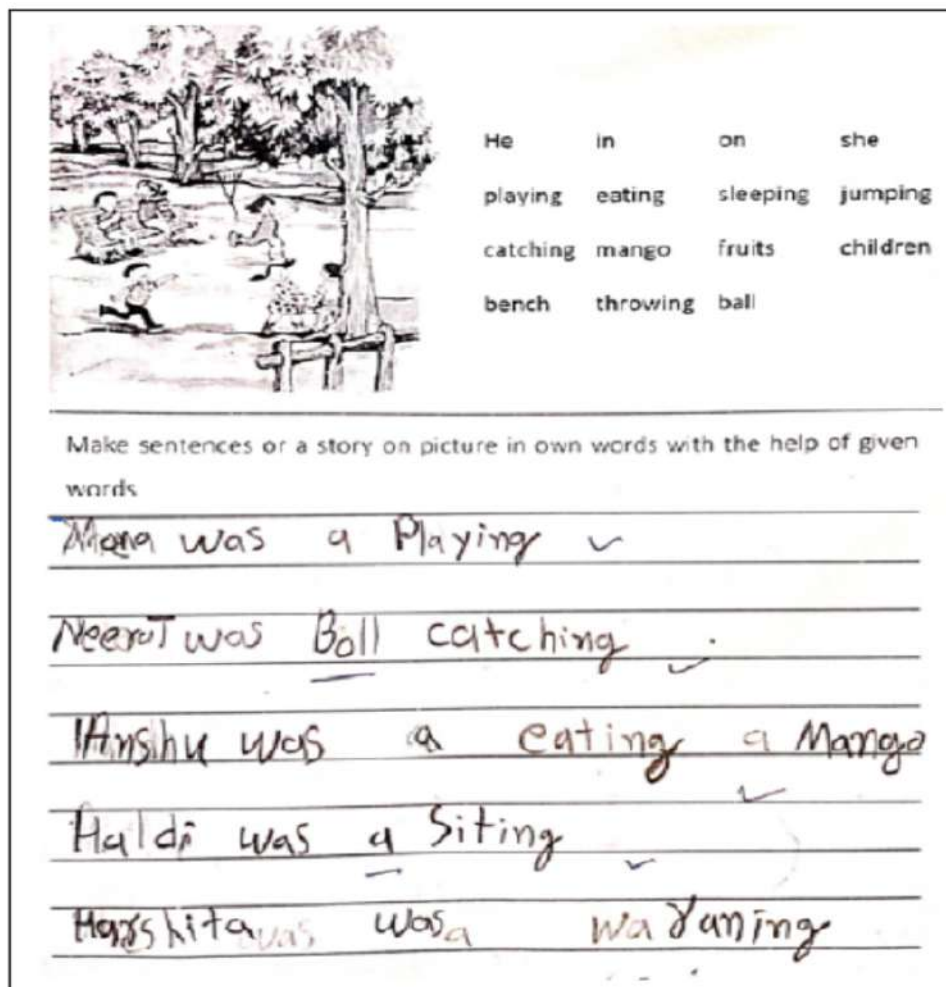 He in on she
playing eating sleeping jumping
catching mango fruits children
bench throwing ball
Make sentences or a story on picture in own words with the help of given
words
Mona was a Playing
was Boll catching
Anshu was a eating a Mango
Haldi was a Siting
Harshita was was a wa runing